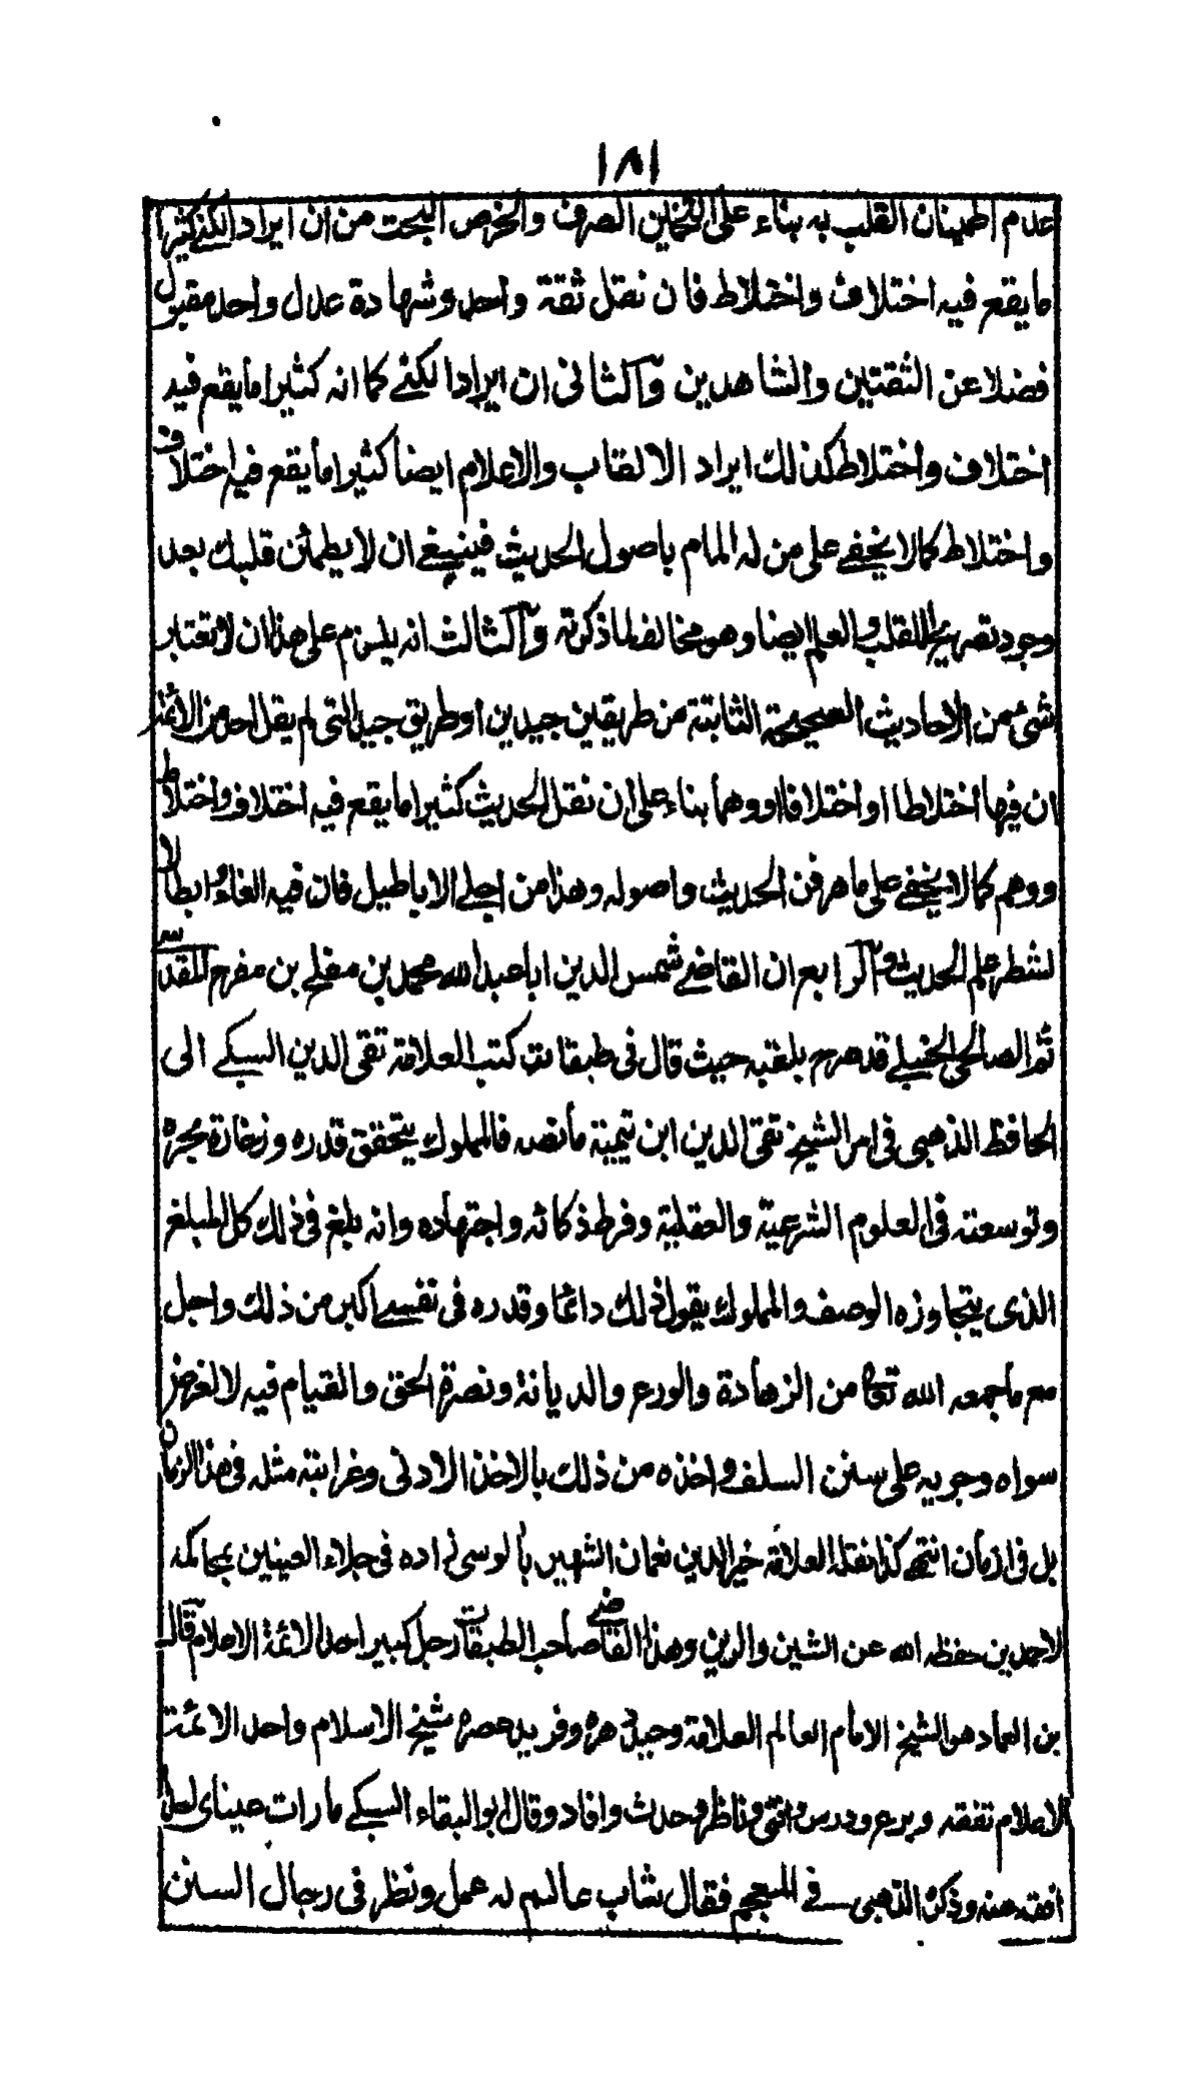 ١٨١
عدم اطمينان القلب به بناء على التخمين الصرف والخرص البحت من ان ايراد الكنى كثيرا
ما يقع فيه اختلاف واختلاط فان نقل ثقة واحد وشهادة عدل واحد مقبول
فضلا عن الثقتين والشاهدين والثانى ان ايراد الكنے كما انه كثيرا ما يقع فيه
اختلاف واختلاط كذلك ايراد الالقاب والاعلام ايضا كثيرا ما يقع فيه اختلاف
واختلاط كما لا يخفے على من له المام باصول الحديث فينبغے ان لا يطمئن قلبك بعد
وجود تصريح اللقب والعلم ايضا وهو مخالف لما ذكرته والثالث انه يلزم على هذا ان لا تعتبر
شئ من الاحاديث الصحيحة الثابتة من طريقين جيدين او طريق جيد التى لم يقل احد من الائمة
ان فيها اختلاطا او اختلافا او وهما بناء على ان نقل الحديث كثيرا ما يقع فيه اختلاف واختلاط
ووهم كما لا يخفے على ماهر فن الحديث واصوله وهذا من اجلے الاباطيل فان فيه الغاء وابطالا
لشطر علم الحديث والرابع ان القاضے شمس الدين ابا عبد الله محمد بن مفلح بن مفرح المقدسے
ثم الصالحى الحنبلے قد صرح بلقبه حيث قال فى طبقاته كتب العلامة تقى الدين السبكے الى
الحافظ الذهبى فى امر الشيخ تقى الدين ابن تيمية ما نصه فالمملوك يتحقق قدره وزخارة بحره
وتوسعته فى العلوم الشرعية والعقلية وفرط ذكائه واجتهاده وانه بلغ فى ذلك كل المبلغ
الذى يتجاوزه الوصف والمملوك يقول ذلك دائما وقدره فى نفسے اكبر من ذلك واجل
مع ما جمعه الله تعالى من الزهادة والورع والديانة ونصرة الحق والقيام فيه لا لغرض
سواه وجريه على سنن السلف واخذه من ذلك بالاخذ الادنى وغرابته مثله فى هذا الزمان
بل فى ازمان انتهے كذا نقله العلامة خير الدين نعمان الشهير بآلوسى زاده فى جلاء العينين بمحاكمة
الاحمدين حفظه الله عن الشين والرين وهذا القاضے صاحب الطبقات رجل كبير احد الائمة الاعلام قال
بن العماد هو الشيخ الامام العالم العلامة وحيد دهره وفريد عصره شيخ الاسلام واحد الائمة
الاعلام تفقه وبرع ودرس وافتى وناظر وحدث وافاد وقال ابو البقاء السبكے ما رات عيناى احدا
افقه منه وذكره الذهبى فے المعجم فقال شاب عالم له عمل ونظر فى رجال السنن